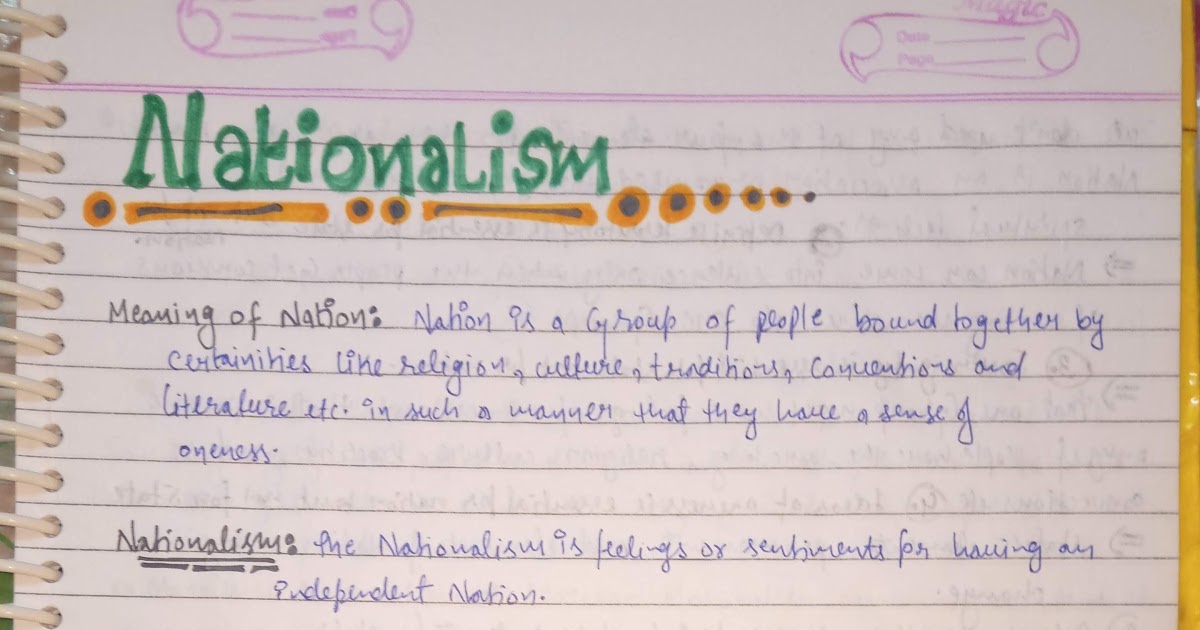 Magic
Date
Page
Nationalism
Meaning of Nation: Nation is a Group of people bound together by
certainities like religion, culture, traditions, Conventions and
literature etc. in such a manner that they have a sense of
oneness.
Nationalism: the Nationalism is feelings or sentiments for having an
independent Nation.